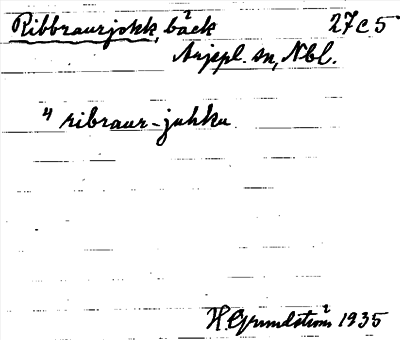 Ribbraurjokk, bäck 27C5
Arjepl. sn, Nbl.
4 ribraur-juhku
H. Grundström 1935